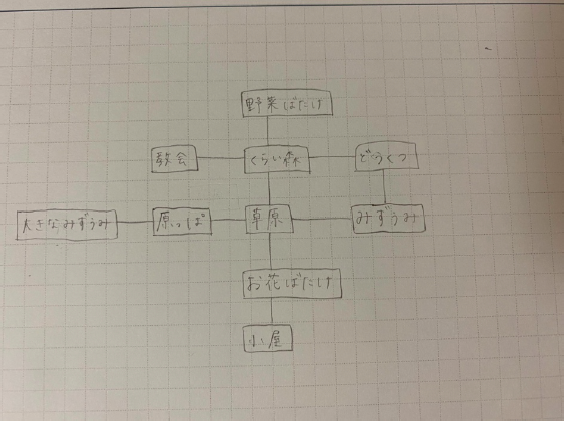 野菜ばたけ
教会 くらい森 どうくつ
大きなみずうみ 原っぱ 草原 みずうみ
お花ばたけ
小屋